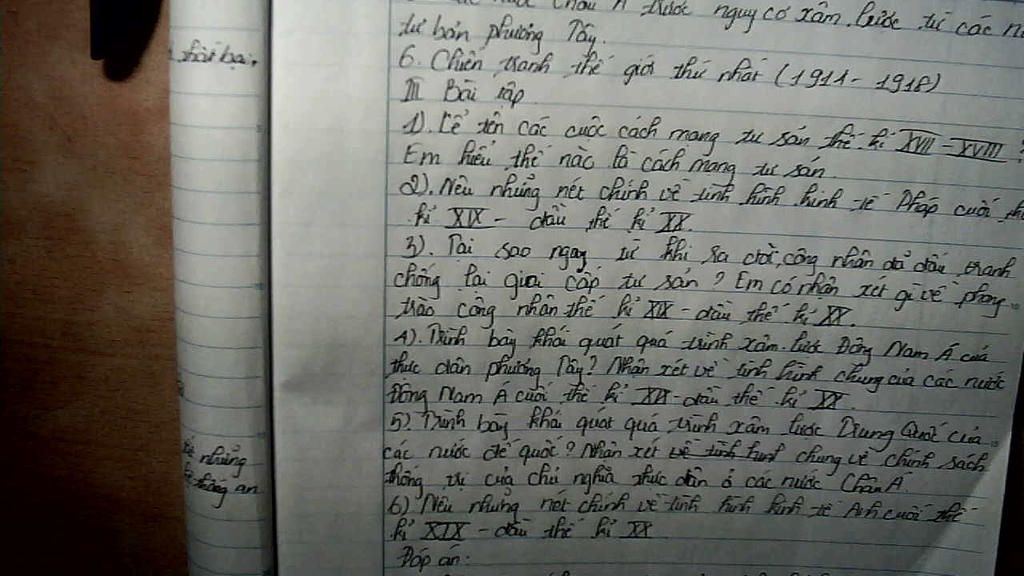 Châu Á trước nguy cơ xâm lược từ các
tư bản phương Tây.
6. Chiến tranh thế giới thứ nhất (1914 - 1918)
III Bài tập
1). Kể tên các cuộc cách mạng tư sản thế kỉ XVII - XVIII ?
Em hiểu thế nào là cách mạng tư sản.
2). Nêu những nét chính về tình hình kinh tế Pháp cuối
kỉ XIX - đầu thế kỉ XX.
3). Tại sao ngay từ khi ra đời, công nhân đã đấu tranh
chống lại giai cấp tư sản? Em có nhận xét gì về phong
trào công nhân thế kỉ XIX - đầu thế kỉ XX.
4). Trình bày khái quát quá trình xâm lược Đông Nam Á của
thực dân phương Tây? Nhận xét về tình hình chung của các nước
Đông Nam Á cuối thế kỉ XIX - đầu thế kỉ XX.
5). Trình bày khái quát quá trình xâm lược Trung Quốc của
các nước đế quốc? Nhận xét về tình hình chung về chính sách
thống trị của chủ nghĩa thực dân ở các nước Châu Á.
6) Nêu những nét chính về tình hình kinh tế Anh cuối thế
kỉ XIX - đầu thế kỉ XX
Đáp án:
thất bại.
những